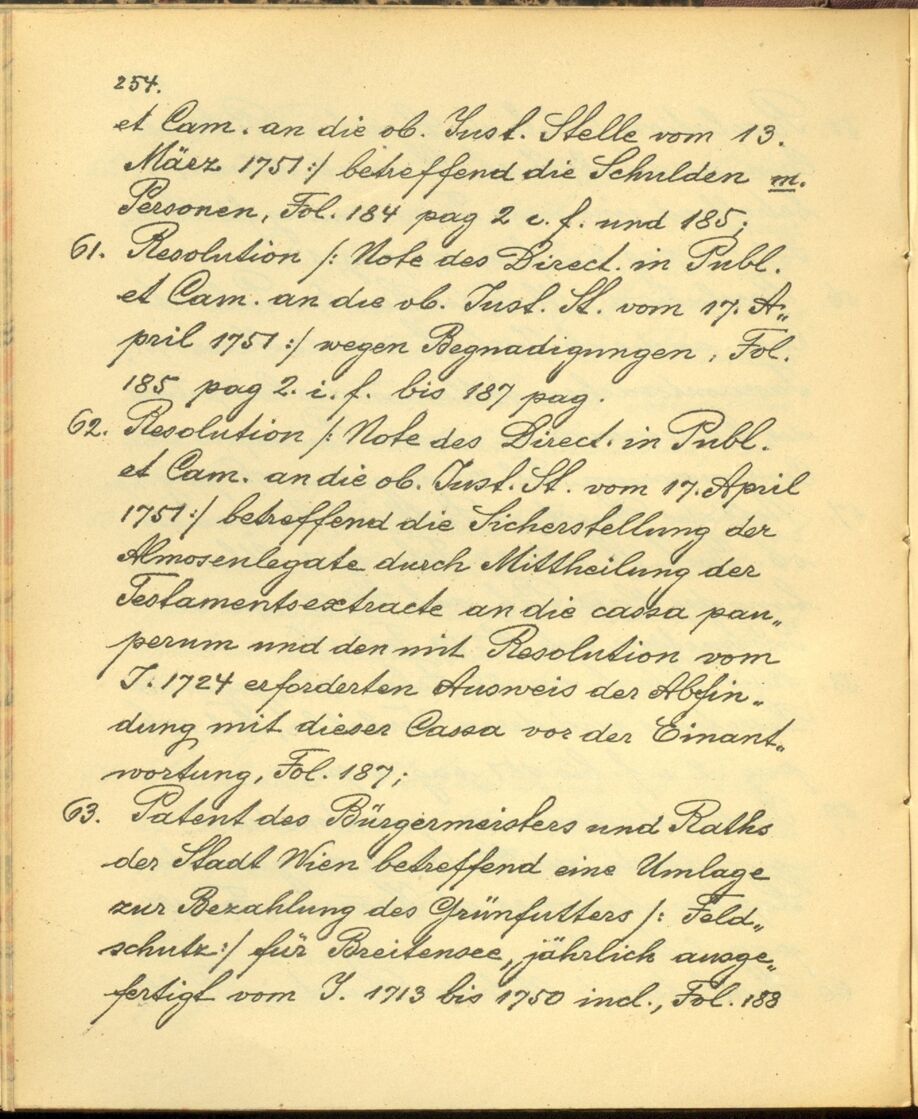 254.
et Cam. an die ob. Just. Stelle vom 13.
März 1751:/ betreffend die Schulden m.
Personen, Fol. 184 pag 2 i. f. und 185;
61. Resolution /: Note des Direct. in Publ.
et Cam. an die ob. Just. St. vom 17. A„
pril 1751:/ wegen Begnadigungen, Fol.
185 pag 2. i. f. bis 187 pag.
62. Resolution /: Note des Direct. in Publ.
et Cam. an die ob. Just. St. vom 17. April
1751:/ betreffend die Sicherstellung der
Almosenlegate durch Mittheilung der
Testamentsextracte an die cassa pau„
perum und den mit Resolution vom
J. 1724 erforderten Ausweis der Abfin„
dung mit dieser Cassa vor der Einant„
wortung, Fol. 187;
63. Patent des Bürgermeisters und Raths
der Stadt Wien betreffend eine Umlage
zur Bezahlung des Grünfutters /: Feld„
schutz:/ für Breitensee, jährlich ausge„
fertigt vom J. 1713 bis 1750 incl., Fol. 188